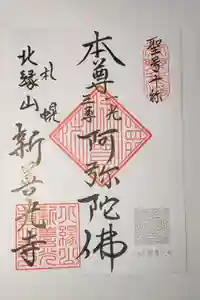 聖号十称
本尊
一光
三尊
阿弥陀佛
札幌
北縁山
新善光寺